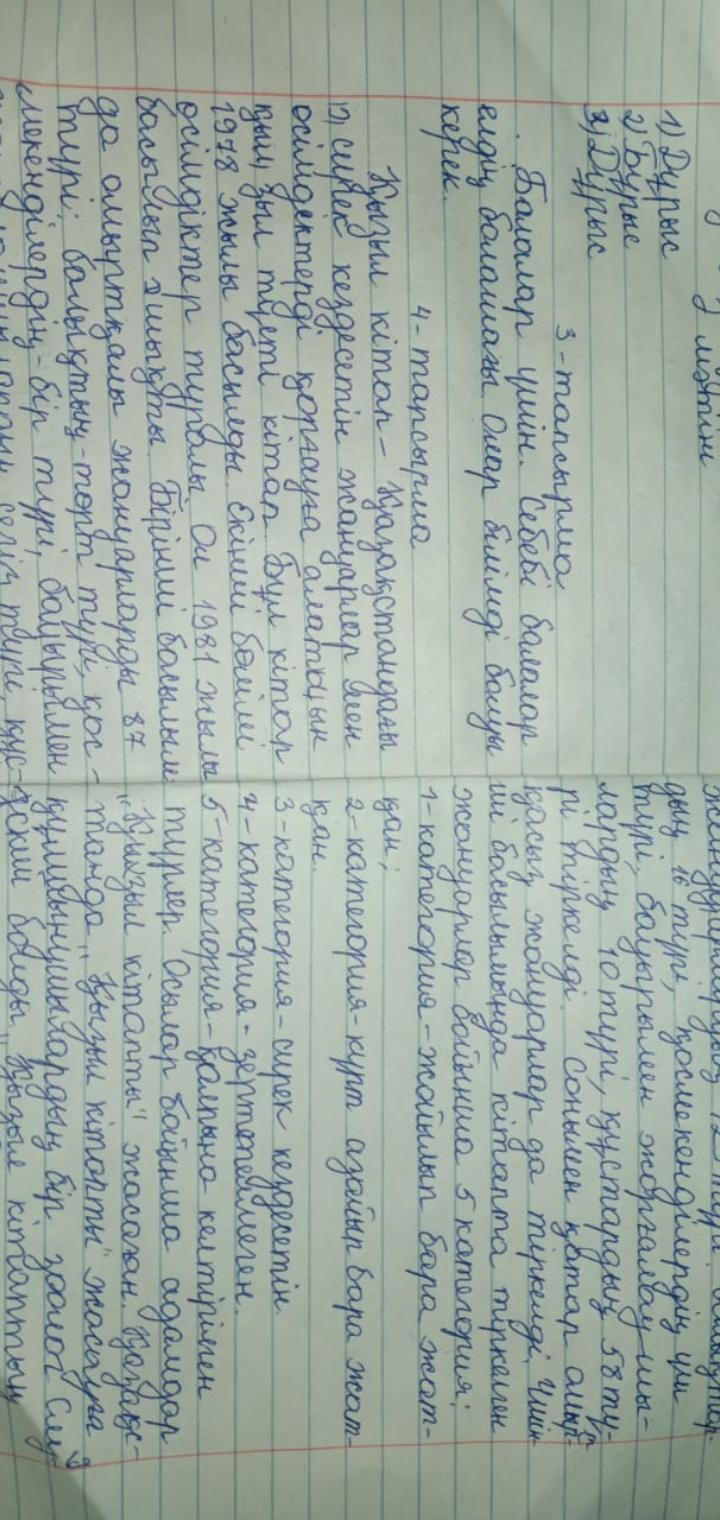 мәтіні
1) Дұрыс
2) Бұрыс
3) Дұрыс
3-тапсырма
Балалар үшін. Себебі балалар
елдің болашағы. Олар білімді болуы
керек.
4-тапсырма
Қызыл кітап – Қазақстандағы
сирек кездесетін жануарлар мен
өсімдіктерді қорғауға алатын
құнды кітап. Бұл кітап
1978 жылы басылды. Екінші бөлімі
өсімдіктер туралы. Ол 1981 жылы
басылып шықты. Бірінші басылым
да омыртқалы жануарларды 87
түрі, балықтың-төрт түрі, қос-
мекенділердің-бір түрі, бауырымен
сегіз түрі, құс-
дың 16 түрі, қосмекенділердің үш
түрі, бауырымен жорғалаушы-
лардың 10 түрі, құстардың 58 тү-
рі тіркелді. Сонымен қатар омырт-
қасыз жануарлар да тіркелді. Үшін-
ші басылымында кітапта тіркелген
жануарлар бойынша 5 категория:
1-категория – жойылып бара жат-
қан;
2-категория-күрт азайып бара жат-
қан.
3-категория-сирек кездесетін
4-категория-зерттелмеген.
5-категория-қалпына келтірілген
түрлер. Осылар бойынша адамдар
"Қызыл кітапты" жасаған. Қазақс-
танда "Қызыл кітапты" жасауға
бір зоолог
болды. "Қызыл кітаптың